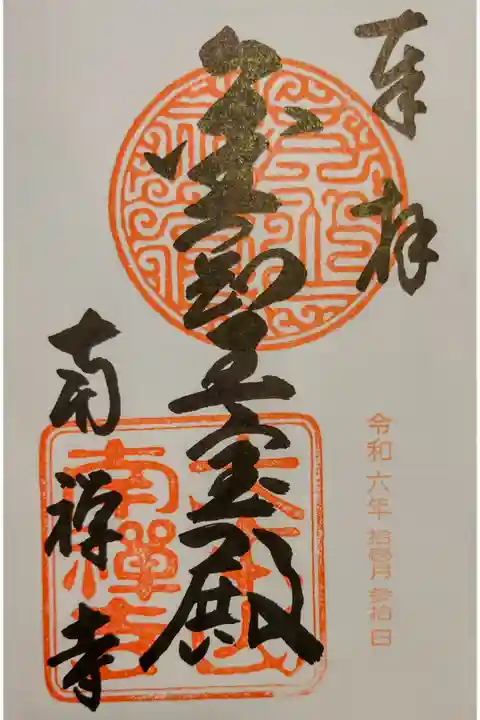 奉拝
金剛王宝殿
南禅寺
令和六年 拾壱月 参拾日
南禪寺